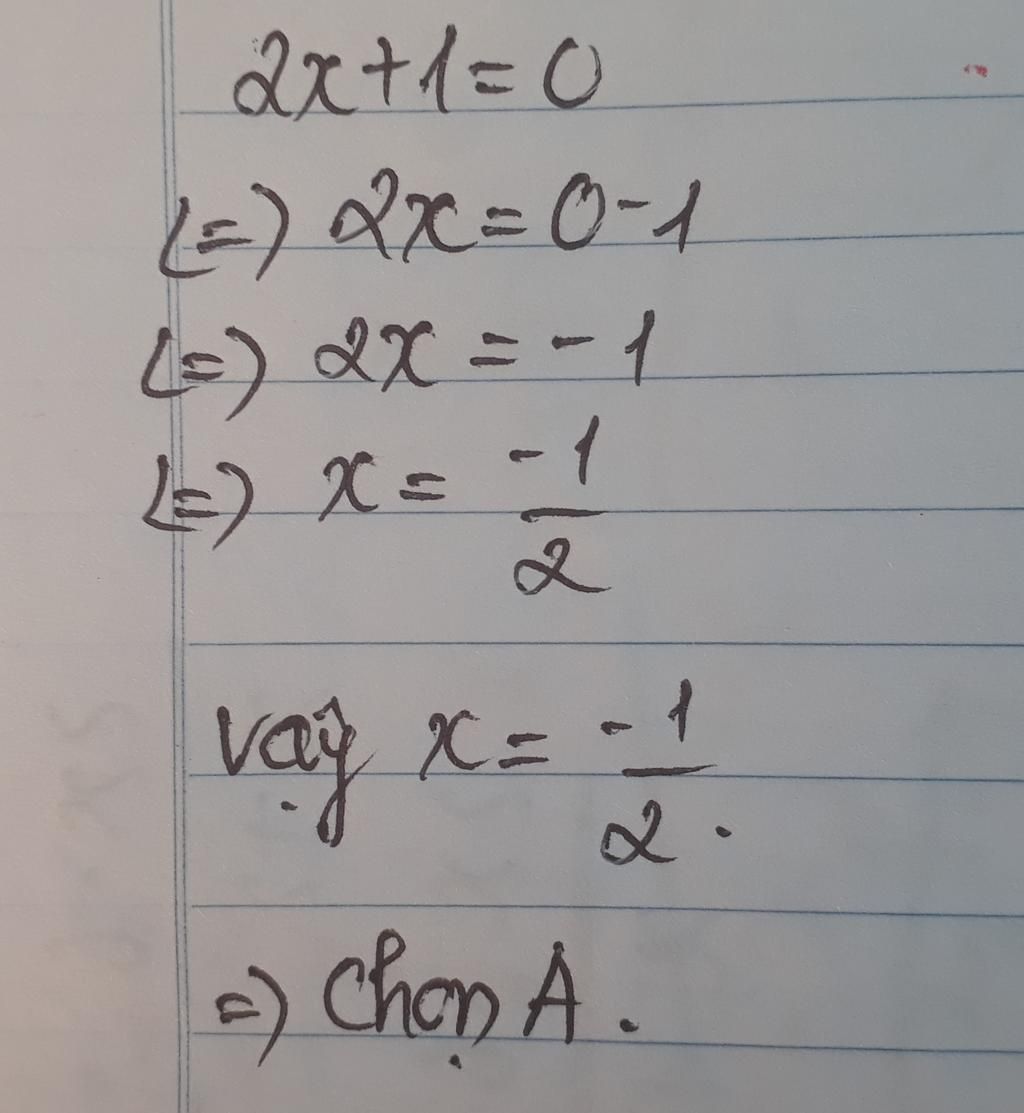 2x+1=0
(=) 2x=0-1
(=) 2x=-1
(=) x=-1/2
Vậy x=-1/2.
=) Chọn A.